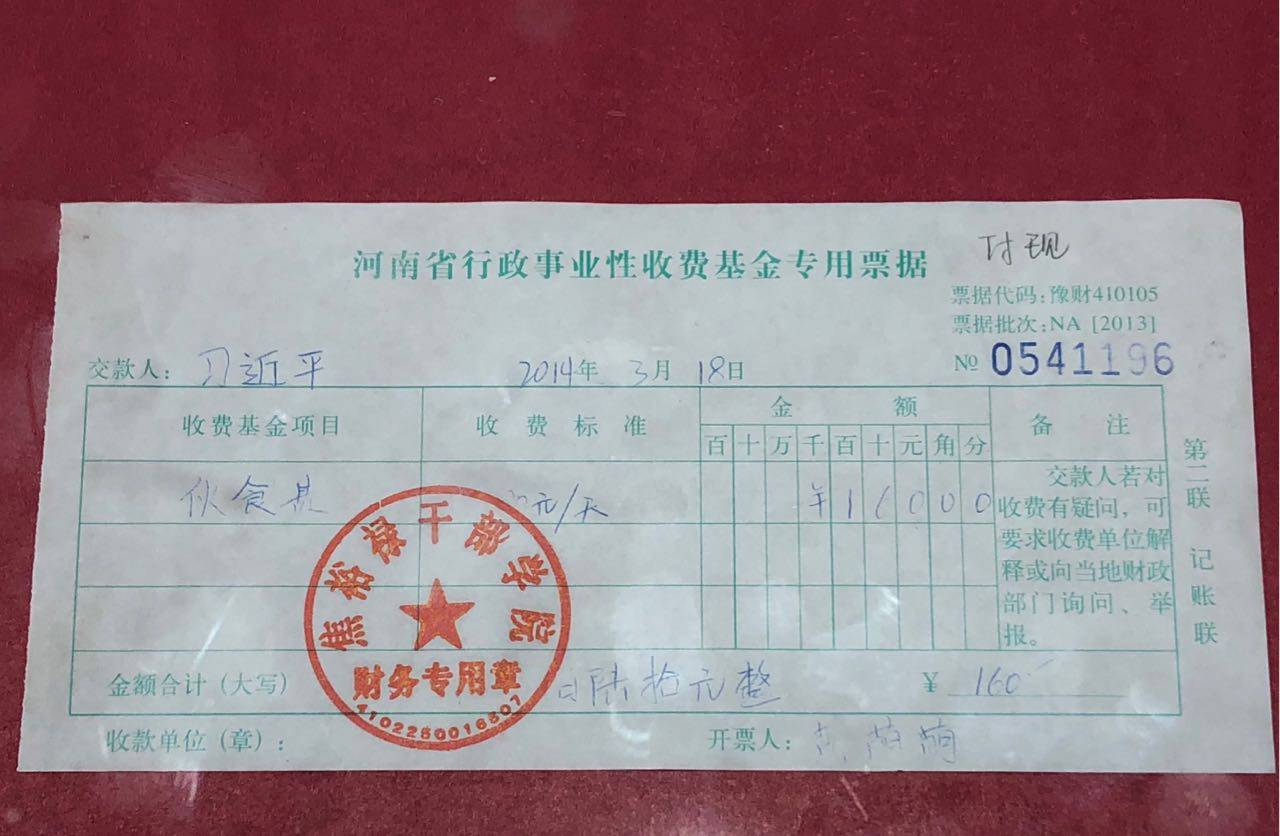 河南省行政事业性收费基金专用票据
付现
票据代码:豫财410105
票据批次:NA [2013]
交款人: 习近平 2014年 3月 18日
№ 0541196
收费基金项目 收费标准 金额 备注
百 十 万 千 百 十 元 角 分
伙食费 元/天 ¥ 1 6 0 0 0
交款人若对
收费有疑问,可
要求收费单位解
释或向当地财政
部门询问、举
报。
第二联 记账联
焦裕禄干部学院
财务专用章
4102250016507
金额合计(大写) 陆拾元整 ¥ 160
收款单位(章): 开票人: